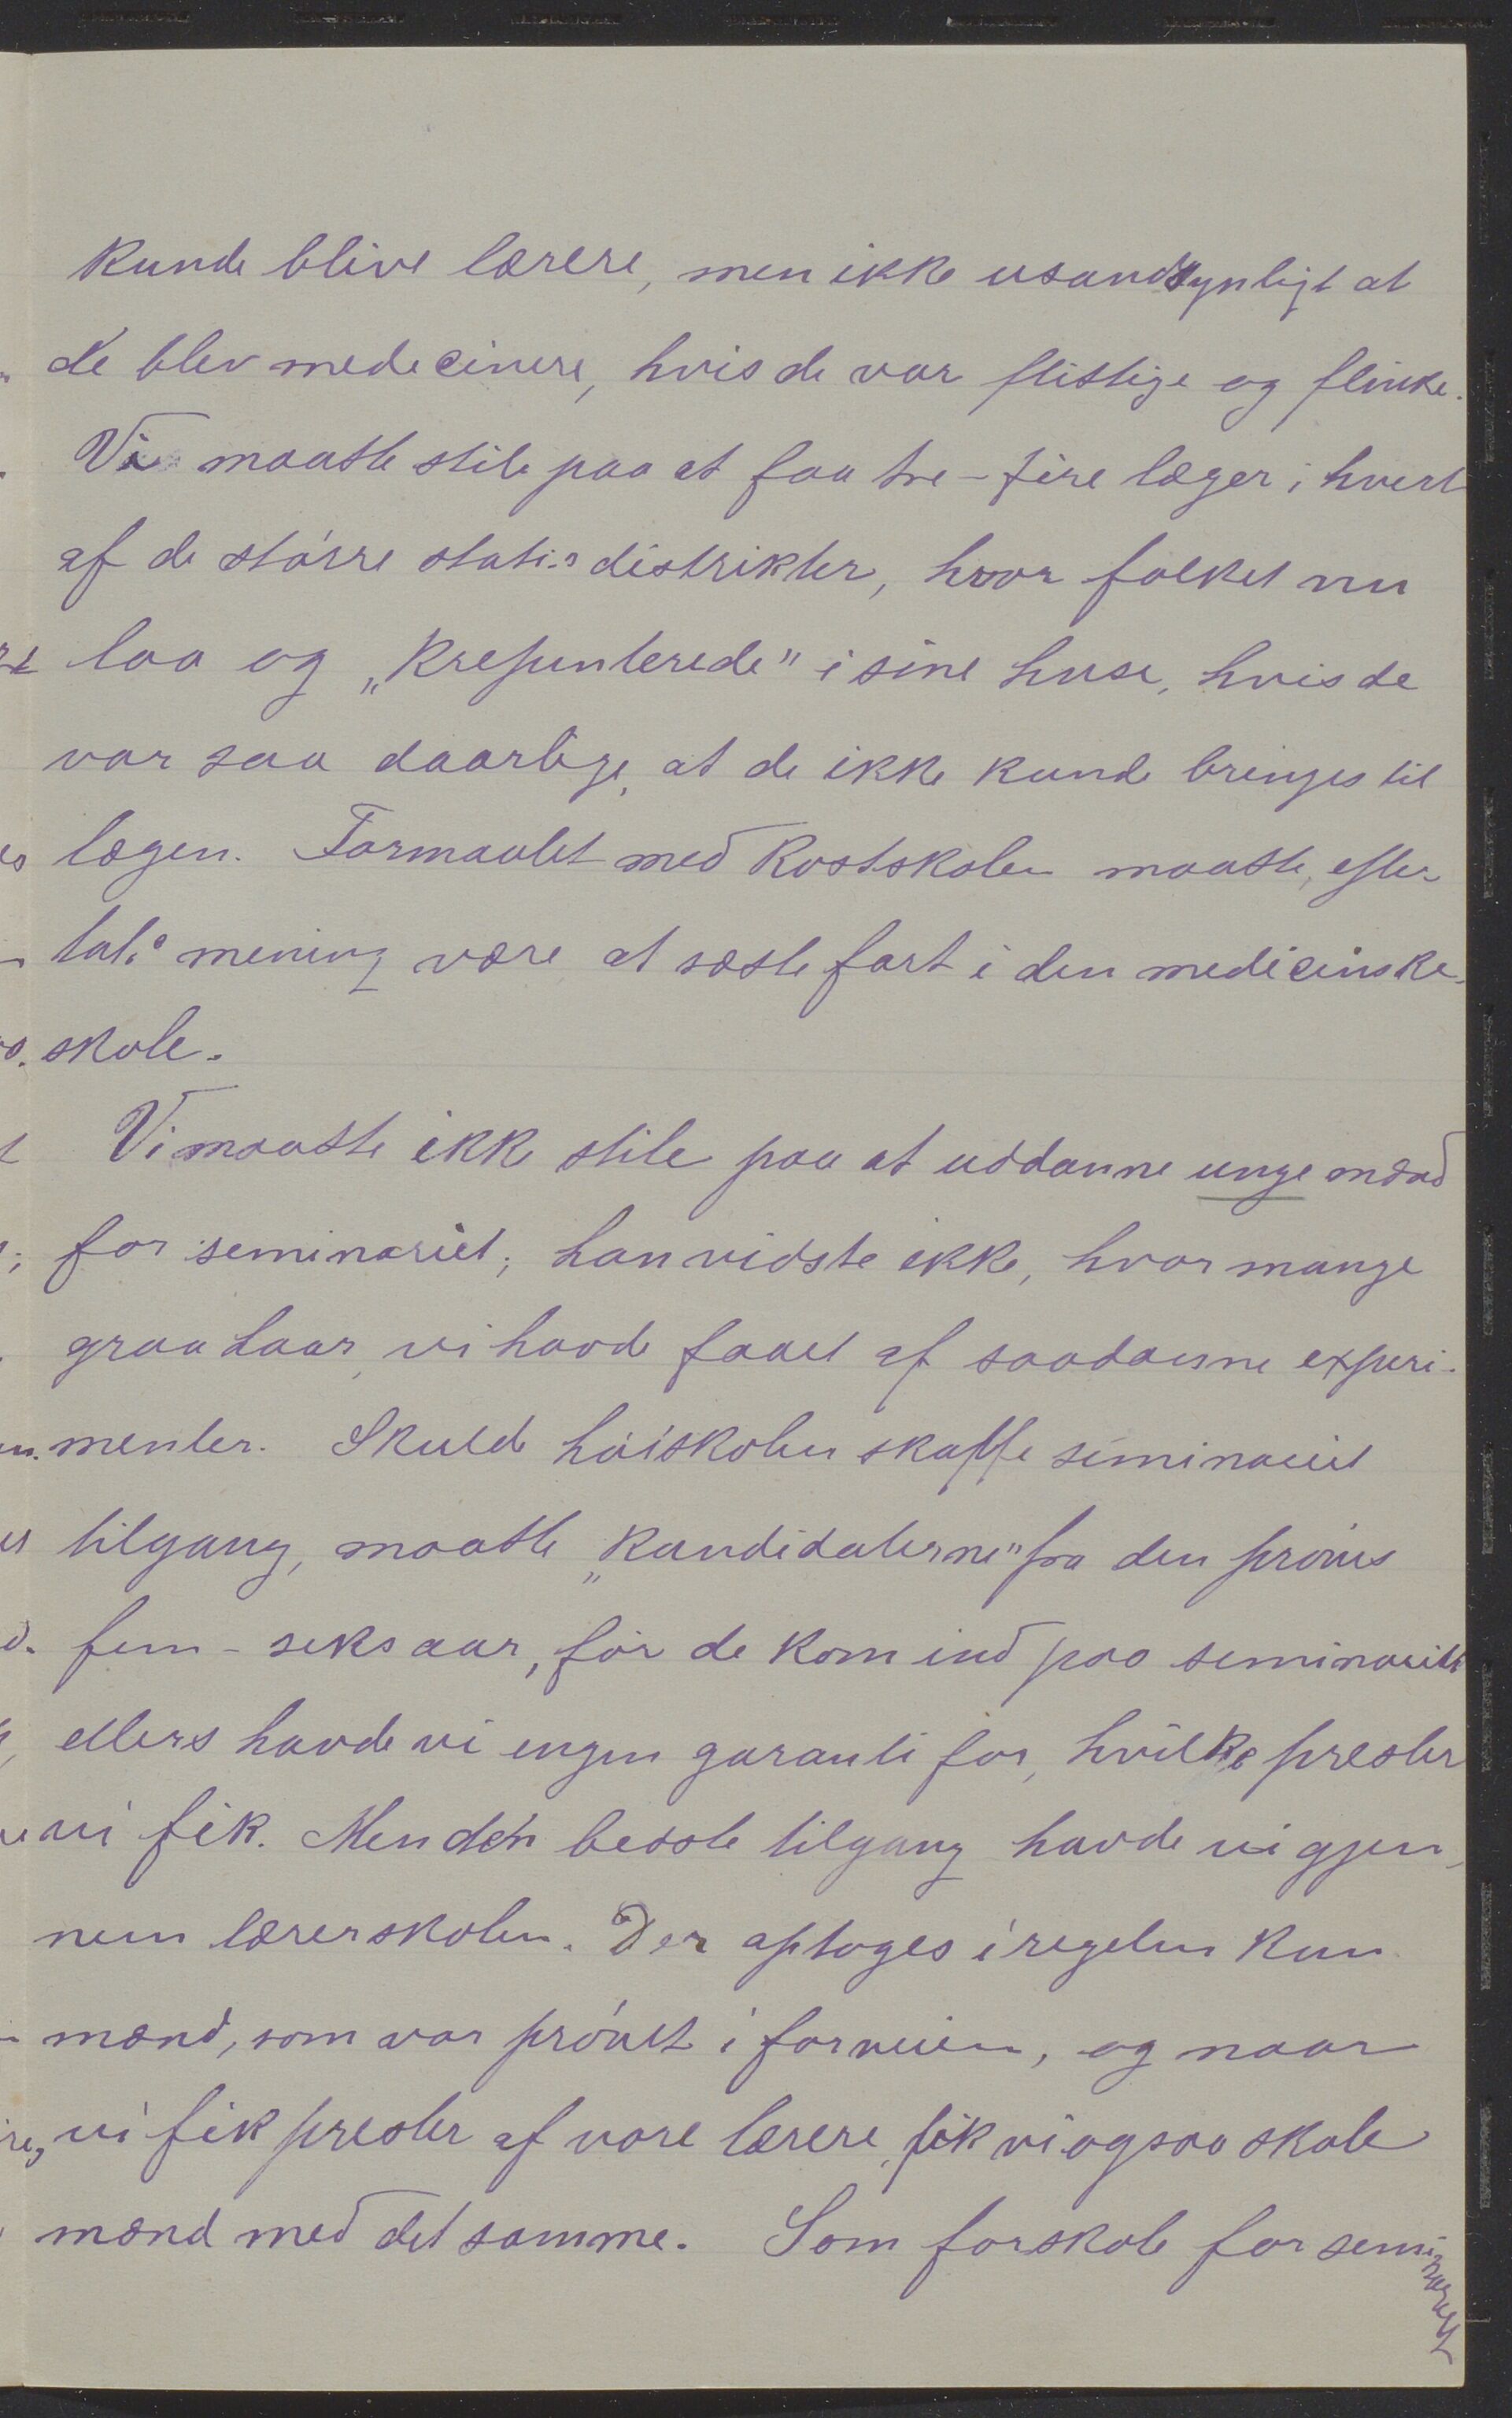 kunde blive lærere, men ikke usandsynligt at
de blev medecinere, hvis de var flittige og flinke.
Vi maatte stile paa at faa tre-fire læger i hvert
af de større stati⸗s distrikter, hvor folket nu
laa og „krepunterede" i sine huse, hvis de
var saa daarlige, at de ikke kunde bringes til
lægen. Formaalet med Kostskolen maatte, efter
tal⸗s mening være at sætte fart i den medicinske
skole.
Vi maatte ikke stile paa at uddanne unge mænd
for seminariet; han vidste ikke, hvor mange
graa haar, vi havde faaet af saadanne experi-
menter. Skulde høiskolen skaffe seminariet
tilgang, maatte „kandidaterne" fra den prøves
fem-seks aar, før de kom ind paa seminariet
ellers havde vi ingen garanti for, hvilke prester
vi fik. Men den bedste tilgang havde vi gjen-
nem lærerskolen. Der optoges i regelen kun
mænd, som var prøvet i forveien, og naar
vi fik prester af vore lærere, fik vi ogsaa skole
mænd med det samme. Som forskole for seminariet